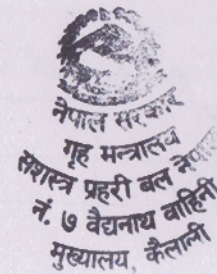 नेपाल सरकार
गृह मन्त्रालय
सशस्त्र प्रहरी बल नेपाल
नं. ७ वैद्यनाथ वाहिनी
मुख्यालय, कैलाली